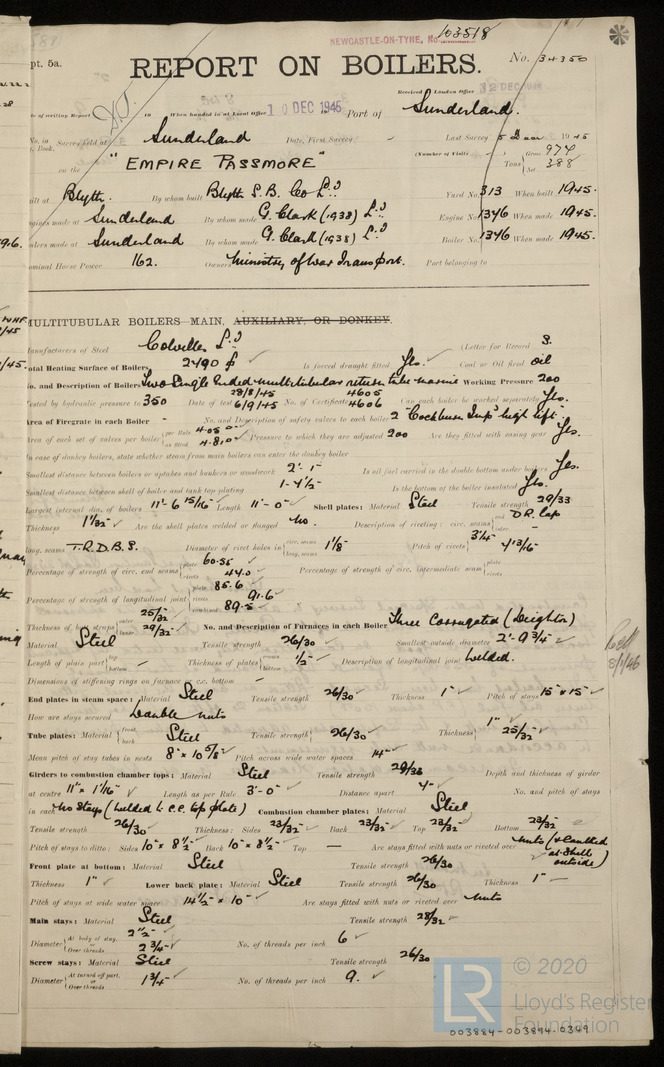 NEWCASTLE-ON-TYNE, No. 103518
pt. 5a.
REPORT ON BOILERS.
No. 34350
Received London Office 12 DEC 1945
of writing Report 19 When handed in at Local Office 10 DEC 1945 Port of Sunderland.
No. in Survey held at Sunderland Date, First Survey - Last Survey 5 Dec 1945
g. Book. (Number of Visits - ) Gross 974
on the "EMPIRE PASSMORE" Tons Net 388
uilt at Blyth. By whom built Blyth S.B. Co Ld Yard No. 313 When built 1945.
ngines made at Sunderland By whom made G. Clark (1938) Ld Engine No. 1346 When made 1945.
oilers made at Sunderland By whom made G. Clark (1938) Ld Boiler No. 1346 When made 1945.
ominal Horse Power 162. Owners Ministry of War Transport. Port belonging to
MULTITUBULAR BOILERS MAIN, AUXILIARY, OR DONKEY.
Manufacturers of Steel Colvilles Ld (Letter for Record S.
Total Heating Surface of Boilers 2490 Is forced draught fitted Yes. Coal or Oil fired oil
No. and Description of Boilers Two Single Ended multitubular return tube marine Working Pressure 200
Tested by hydraulic pressure to 350 Date of test 28/8/45 6/9/45 No. of Certificate 4605 4606 Can each boiler be worked separately Yes.
Area of Firegrate in each Boiler - No. and Description of safety valves to each boiler 2 "Cockburn Impd high lift"
Area of each set of valves per boiler per Rule 4.05 as fitted 4.81 Pressure to which they are adjusted 200 Are they fitted with easing gear Yes.
In case of donkey boilers, state whether steam from main boilers can enter the donkey boiler
Smallest distance between boilers or uptakes and bunkers or woodwork 2'-1" Is oil fuel carried in the double bottom under boilers Yes.
Smallest distance between shell of boiler and tank top plating 1-4½" Is the bottom of the boiler insulated Yes.
Largest internal dia. of boilers 11'-6 15/16" Length 11'-0" Shell plates: Material Steel Tensile strength 29/33
Thickness 1 1/32" Are the shell plates welded or flanged No. Description of riveting: circ. seams end D.R. Lap
long. seams T.R.D.B.S. Diameter of rivet holes in circ. seams long. seams 1 1/8 Pitch of rivets 3 1/4" 4 13/16"
Percentage of strength of circ. end seams plate 60.55 rivets 44.0 Percentage of strength of circ. intermediate seam plate rivets
Percentage of strength of longitudinal joint plate 85.6 rivets 91.6 combined 89.5
Thickness of butt straps outer 25/32 inner 29/32 No. and Description of Furnaces in each Boiler Three Corrugated (Deighton)
Material Steel Tensile strength 26/30 Smallest outside diameter 2'-9¾"
Length of plain part top bottom - Thickness of plates crown bottom ½" Description of longitudinal joint Welded.
Dimensions of stiffening rings on furnace or c.c. bottom -
End plates in steam space: Material Steel Tensile strength 26/30 Thickness 1" Pitch of stays 15" x 15"
How are stays secured Double nuts
Tube plates: Material front back Steel Tensile strength 26/30 Thickness 1" 25/32"
Mean pitch of stay tubes in nests 8" x 10 5/8" Pitch across wide water spaces 14"
Girders to combustion chamber tops: Material Steel Tensile strength 29/33 Depth and thickness of girder
at centre 11" x 1 1/16" Length as per Rule 3'-0" Distance apart No. and pitch of stays
in each No Stays (welded to C.C. top plate) Combustion chamber plates: Material Steel
Tensile strength 26/30 Thickness: Sides 23/32" Back 23/32" Top 23/32" Bottom 23/32
Pitch of stays to ditto: Sides 10" x 8½" Back 10" x 8½" Top - Are stays fitted with nuts or riveted over Nuts (& Caulked at shell outside)
Front plate at bottom: Material Steel Tensile strength 26/30
Thickness 1" Lower back plate: Material Steel Tensile strength 26/30 Thickness 1"
Pitch of stays at wide water space 14½" x 10" Are stays fitted with nuts or riveted over Nuts
Main stays: Material Steel Tensile strength 28/32
Diameter At body of stay, or Over threads 2½" 2¾" No. of threads per inch 6
Screw stays: Material Steel Tensile strength 26/30
Diameter At turned off part, or Over threads 1¾" No. of threads per inch 9.
LR © 2020
Lloyd's Register
Foundation
003884-003894-0349